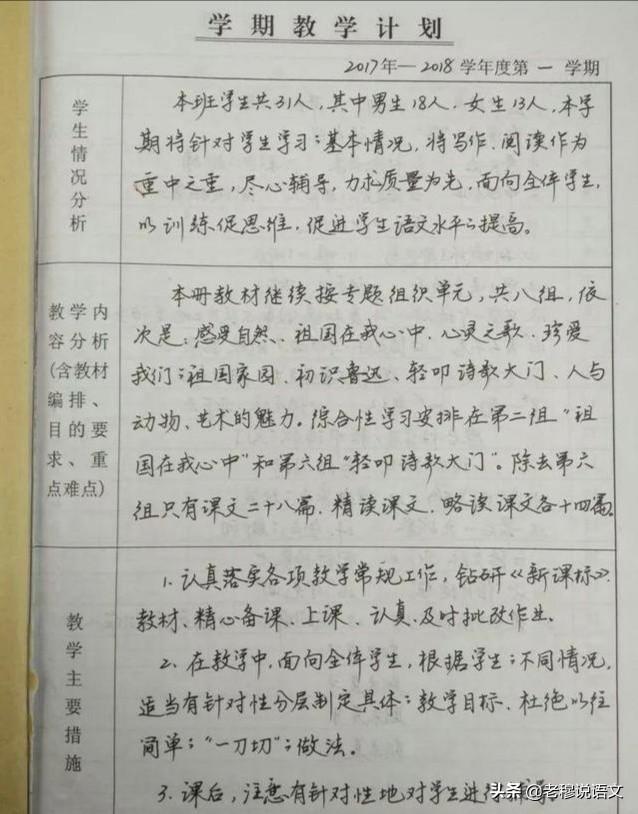 学期教学计划
2017年—2018学年度第一学期
学生情况分析
本班学生共31人,其中男生18人,女生13人,本学
期将针对学生学习的基本情况,将写作、阅读作为
重中之重,尽心辅导,力求质量为先,面向全体学生,
以训练促思维,促进学生语文水平的提高。
教学内
容分析
(含教材
编排、
目的要
求、重
点难点)
本册教材继续按专题组织单元,共八组,依
次是:感受自然、祖国在我心中、心灵之歌、珍爱
我们的祖国家园、初识鲁迅、轻叩诗歌大门、人与
动物、艺术的魅力。综合性学习安排在第二组“祖
国在我心中”和第六组“轻叩诗歌大门”。除去第六
组只有课文二十八篇,精读课文、略读课文各十四篇。
教学主要措施
1.认真落实各项教学常规工作,钻研《新课标》、
教材、精心备课、上课、认真、及时批改作业。
2、在教学中,面向全体学生,根据学生的不同情况,
适当有针对性分层制定具体的教学目标、杜绝以往
简单的“一刀切”的做法。
3.课后,注意有针对性地对学生进行
头条@老穆说语文